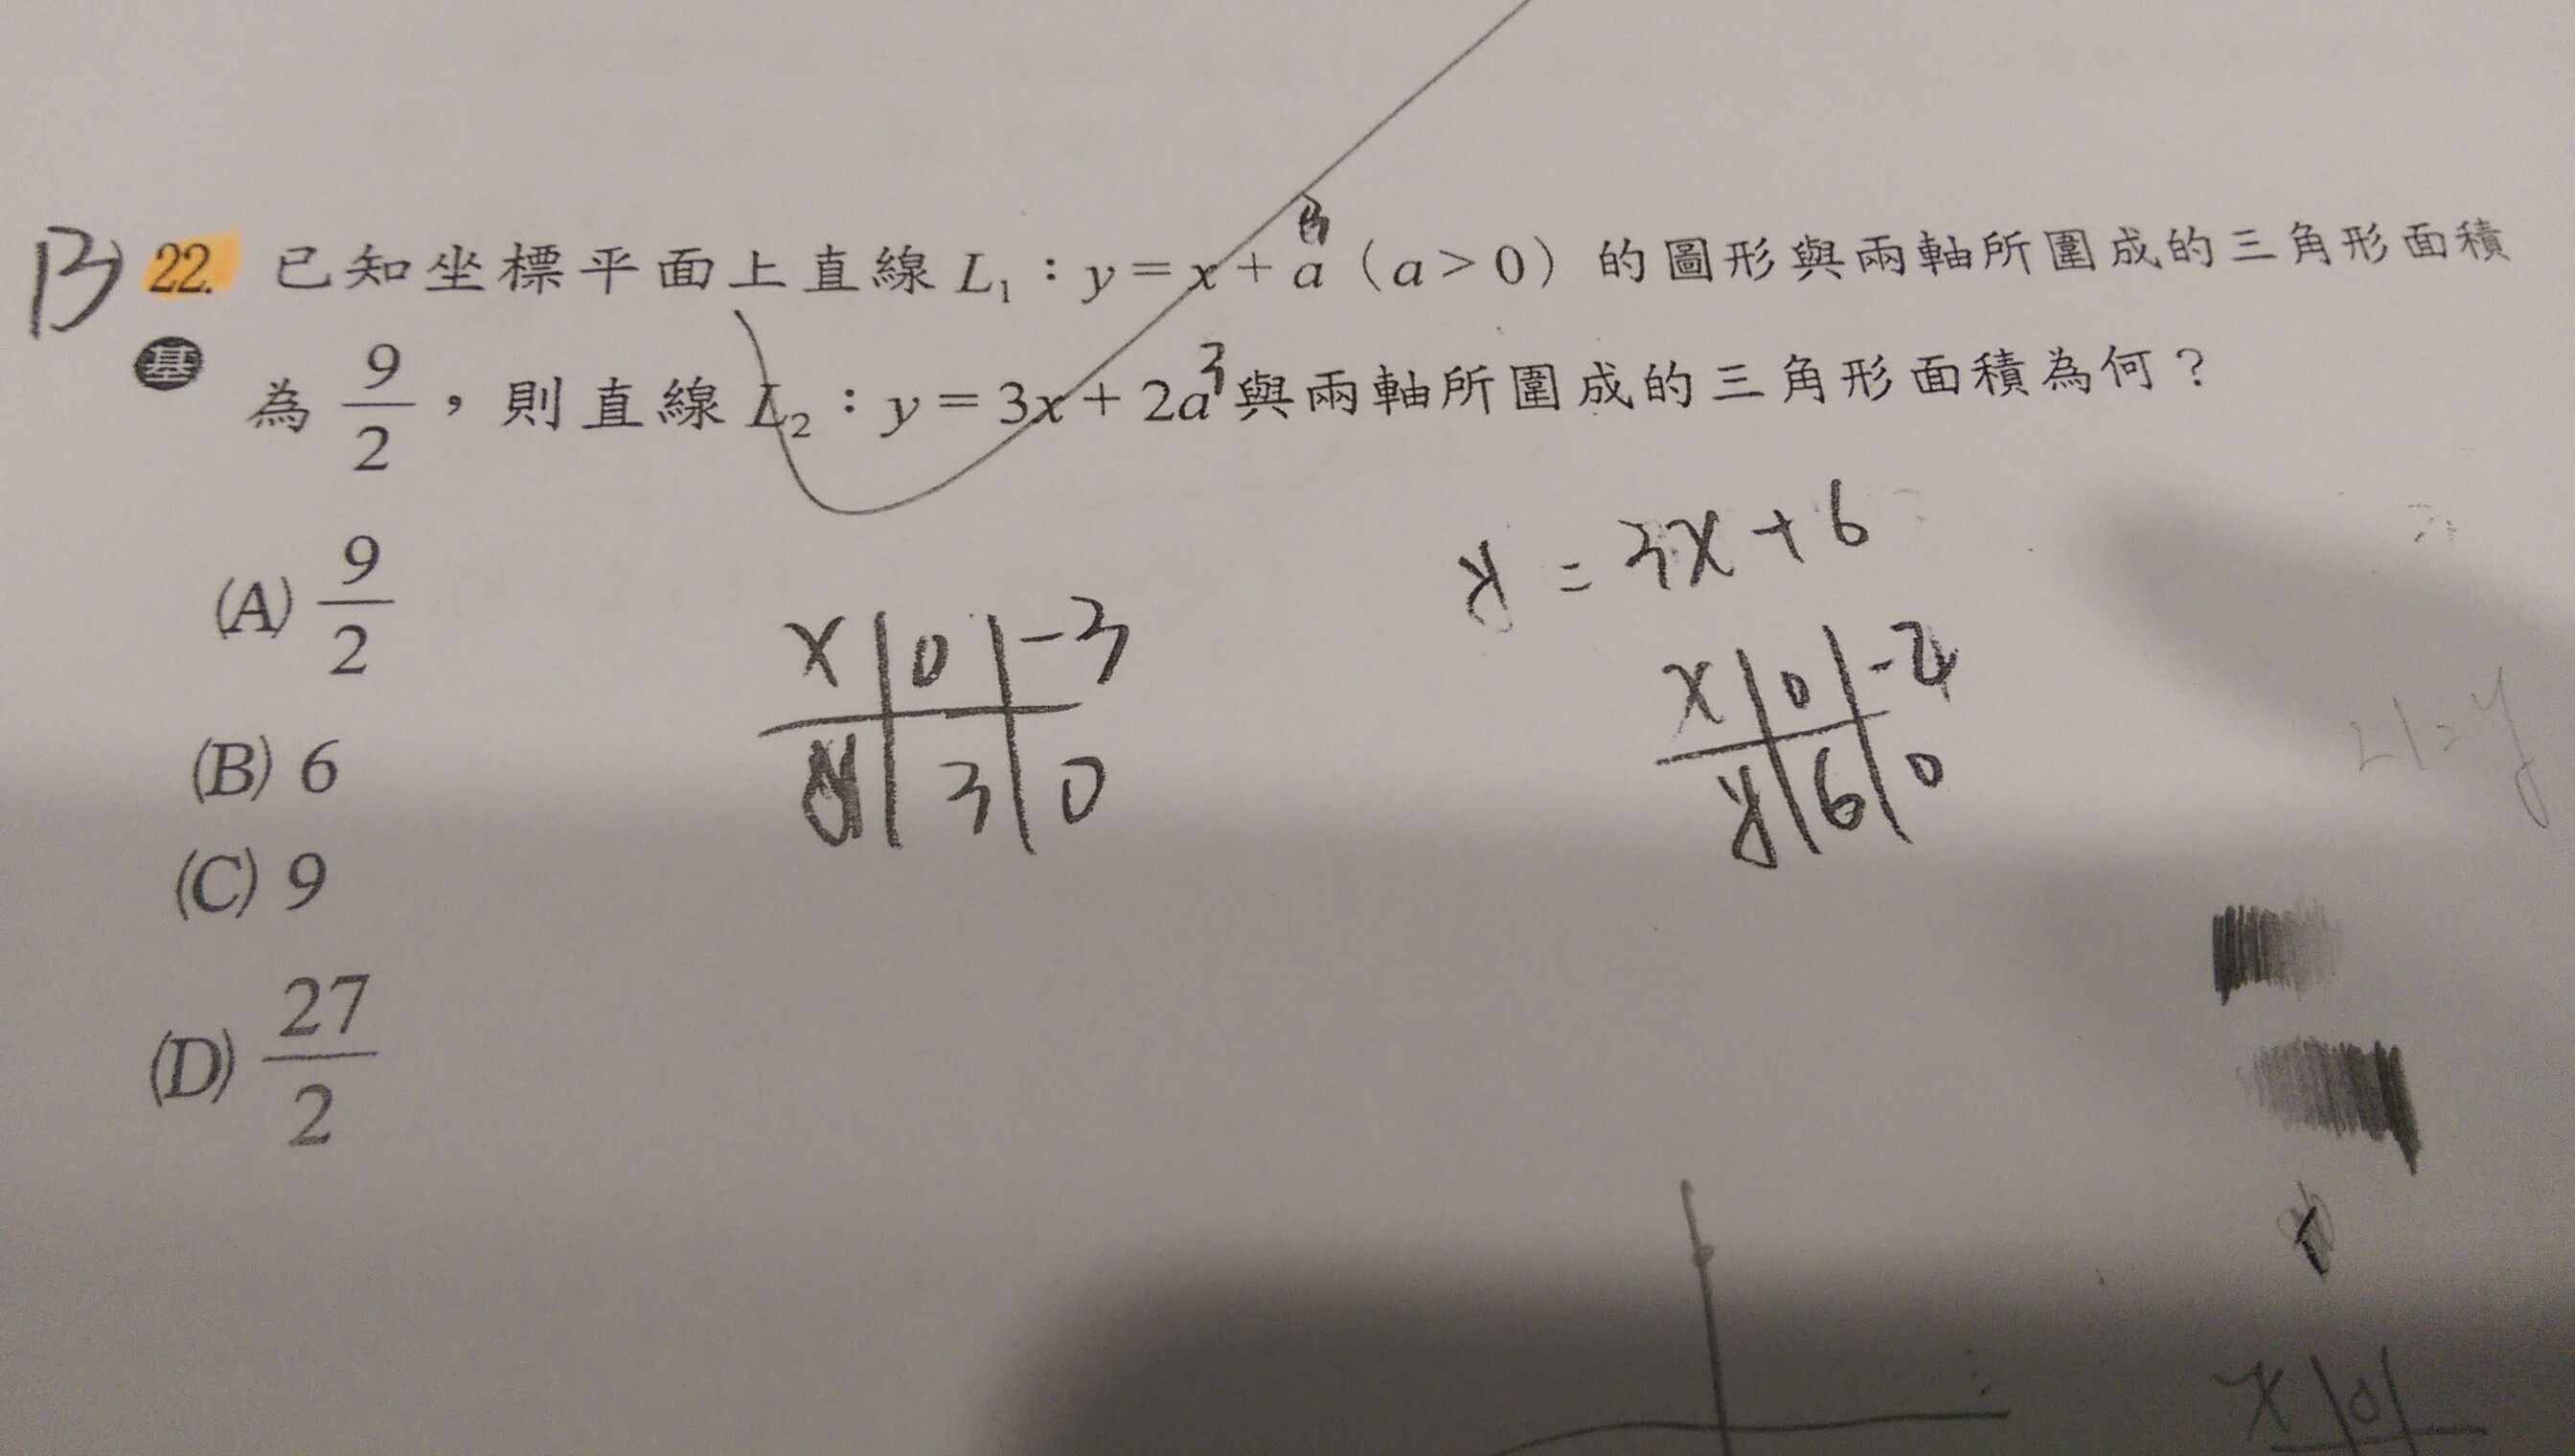 B 22. 已知坐標平面上直線 L₁：y = x + a（a > 0）的圖形與兩軸所圍成的三角形面積
基 為 9/2，則直線 L₂：y = 3x + 2a 3 與兩軸所圍成的三角形面積為何？
(A) 9/2
(B) 6
(C) 9
(D) 27/2
x | 0 | -3
y | 3 | 0
y = 3x + 6
x | 0 | -2
y | 6 | 0
x | 0 |